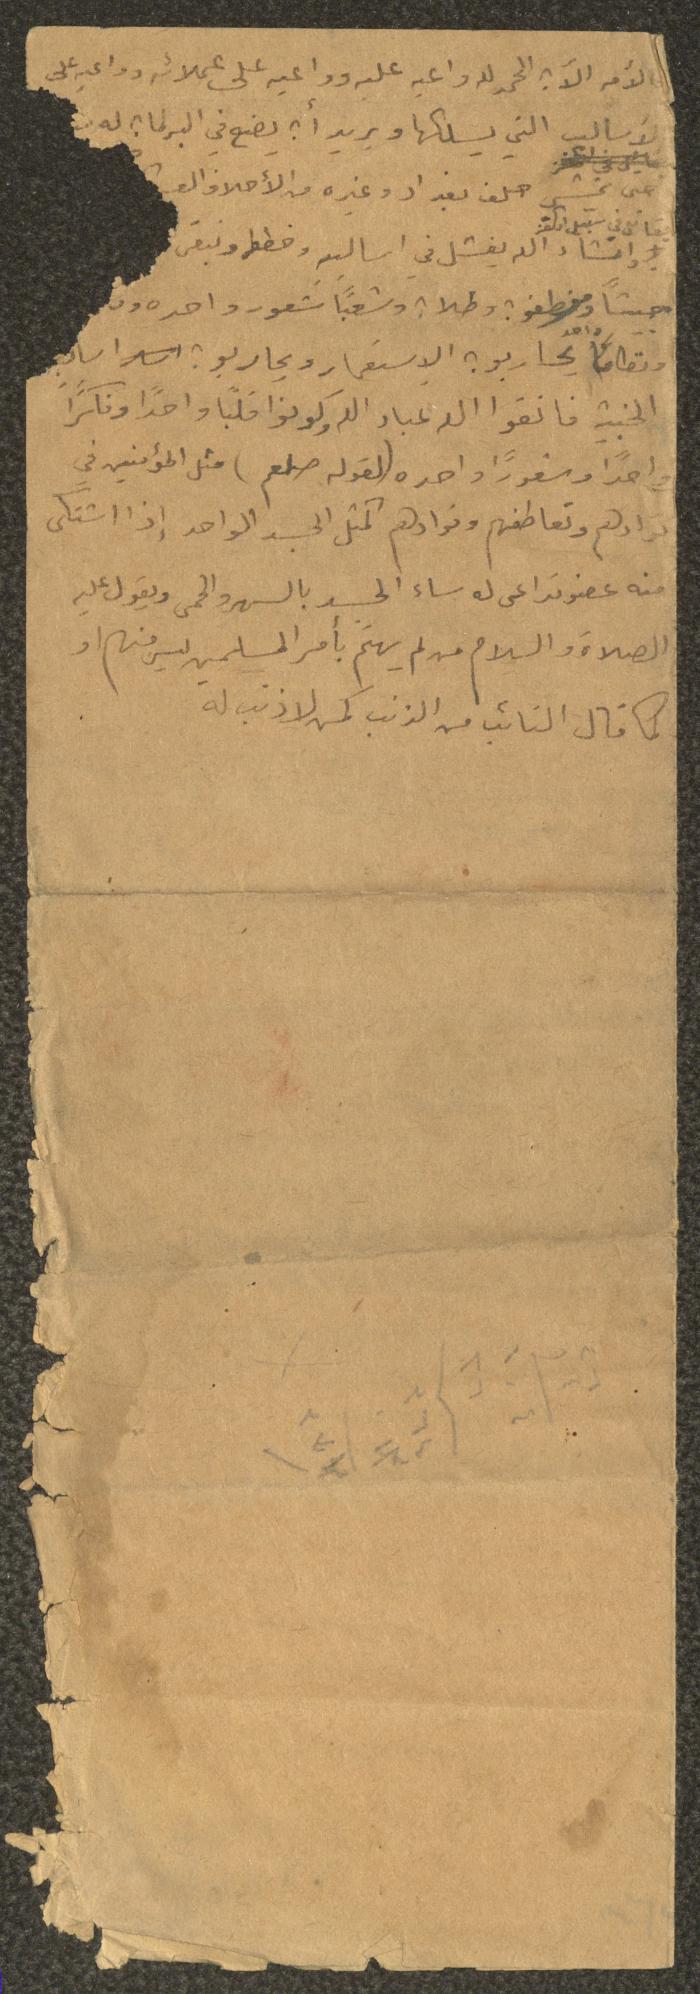 الأمه الآن الحمد لله واعيه عليه وواعيه على عملائه وواعيه على
الأساليب التي يسلكها ويريد أن يضع في البرلمان له
حتى تمشي حلف بغداد وغيره من الأحلاف
وانشاء الله يفشل في اساليبه وخططه ونبقى
جيشاً وموظفون وطلاب وشعبًا شعور واحده
ونظامًا واحد يحاربون الاستعمار ويحاربون
الخبيثه فاتقوا الله عباد الله وكونوا قلبًا واحدًا وفكرًا
واحدًا وشعورًا واحده (لقوله صلعم) مثل المؤمنين في
توادهم وتعاطفهم وتوادهم كمثل الجسد الواحد إذا اشتكى
منه عضو تداعى له ساء الجسد بالسهر والحمى ويقول عليه
الصلاة والسلام من لم يهتم بأمر المسلمين ليس منهم او
كما قال التائب من الذنب كمن لا ذنب له